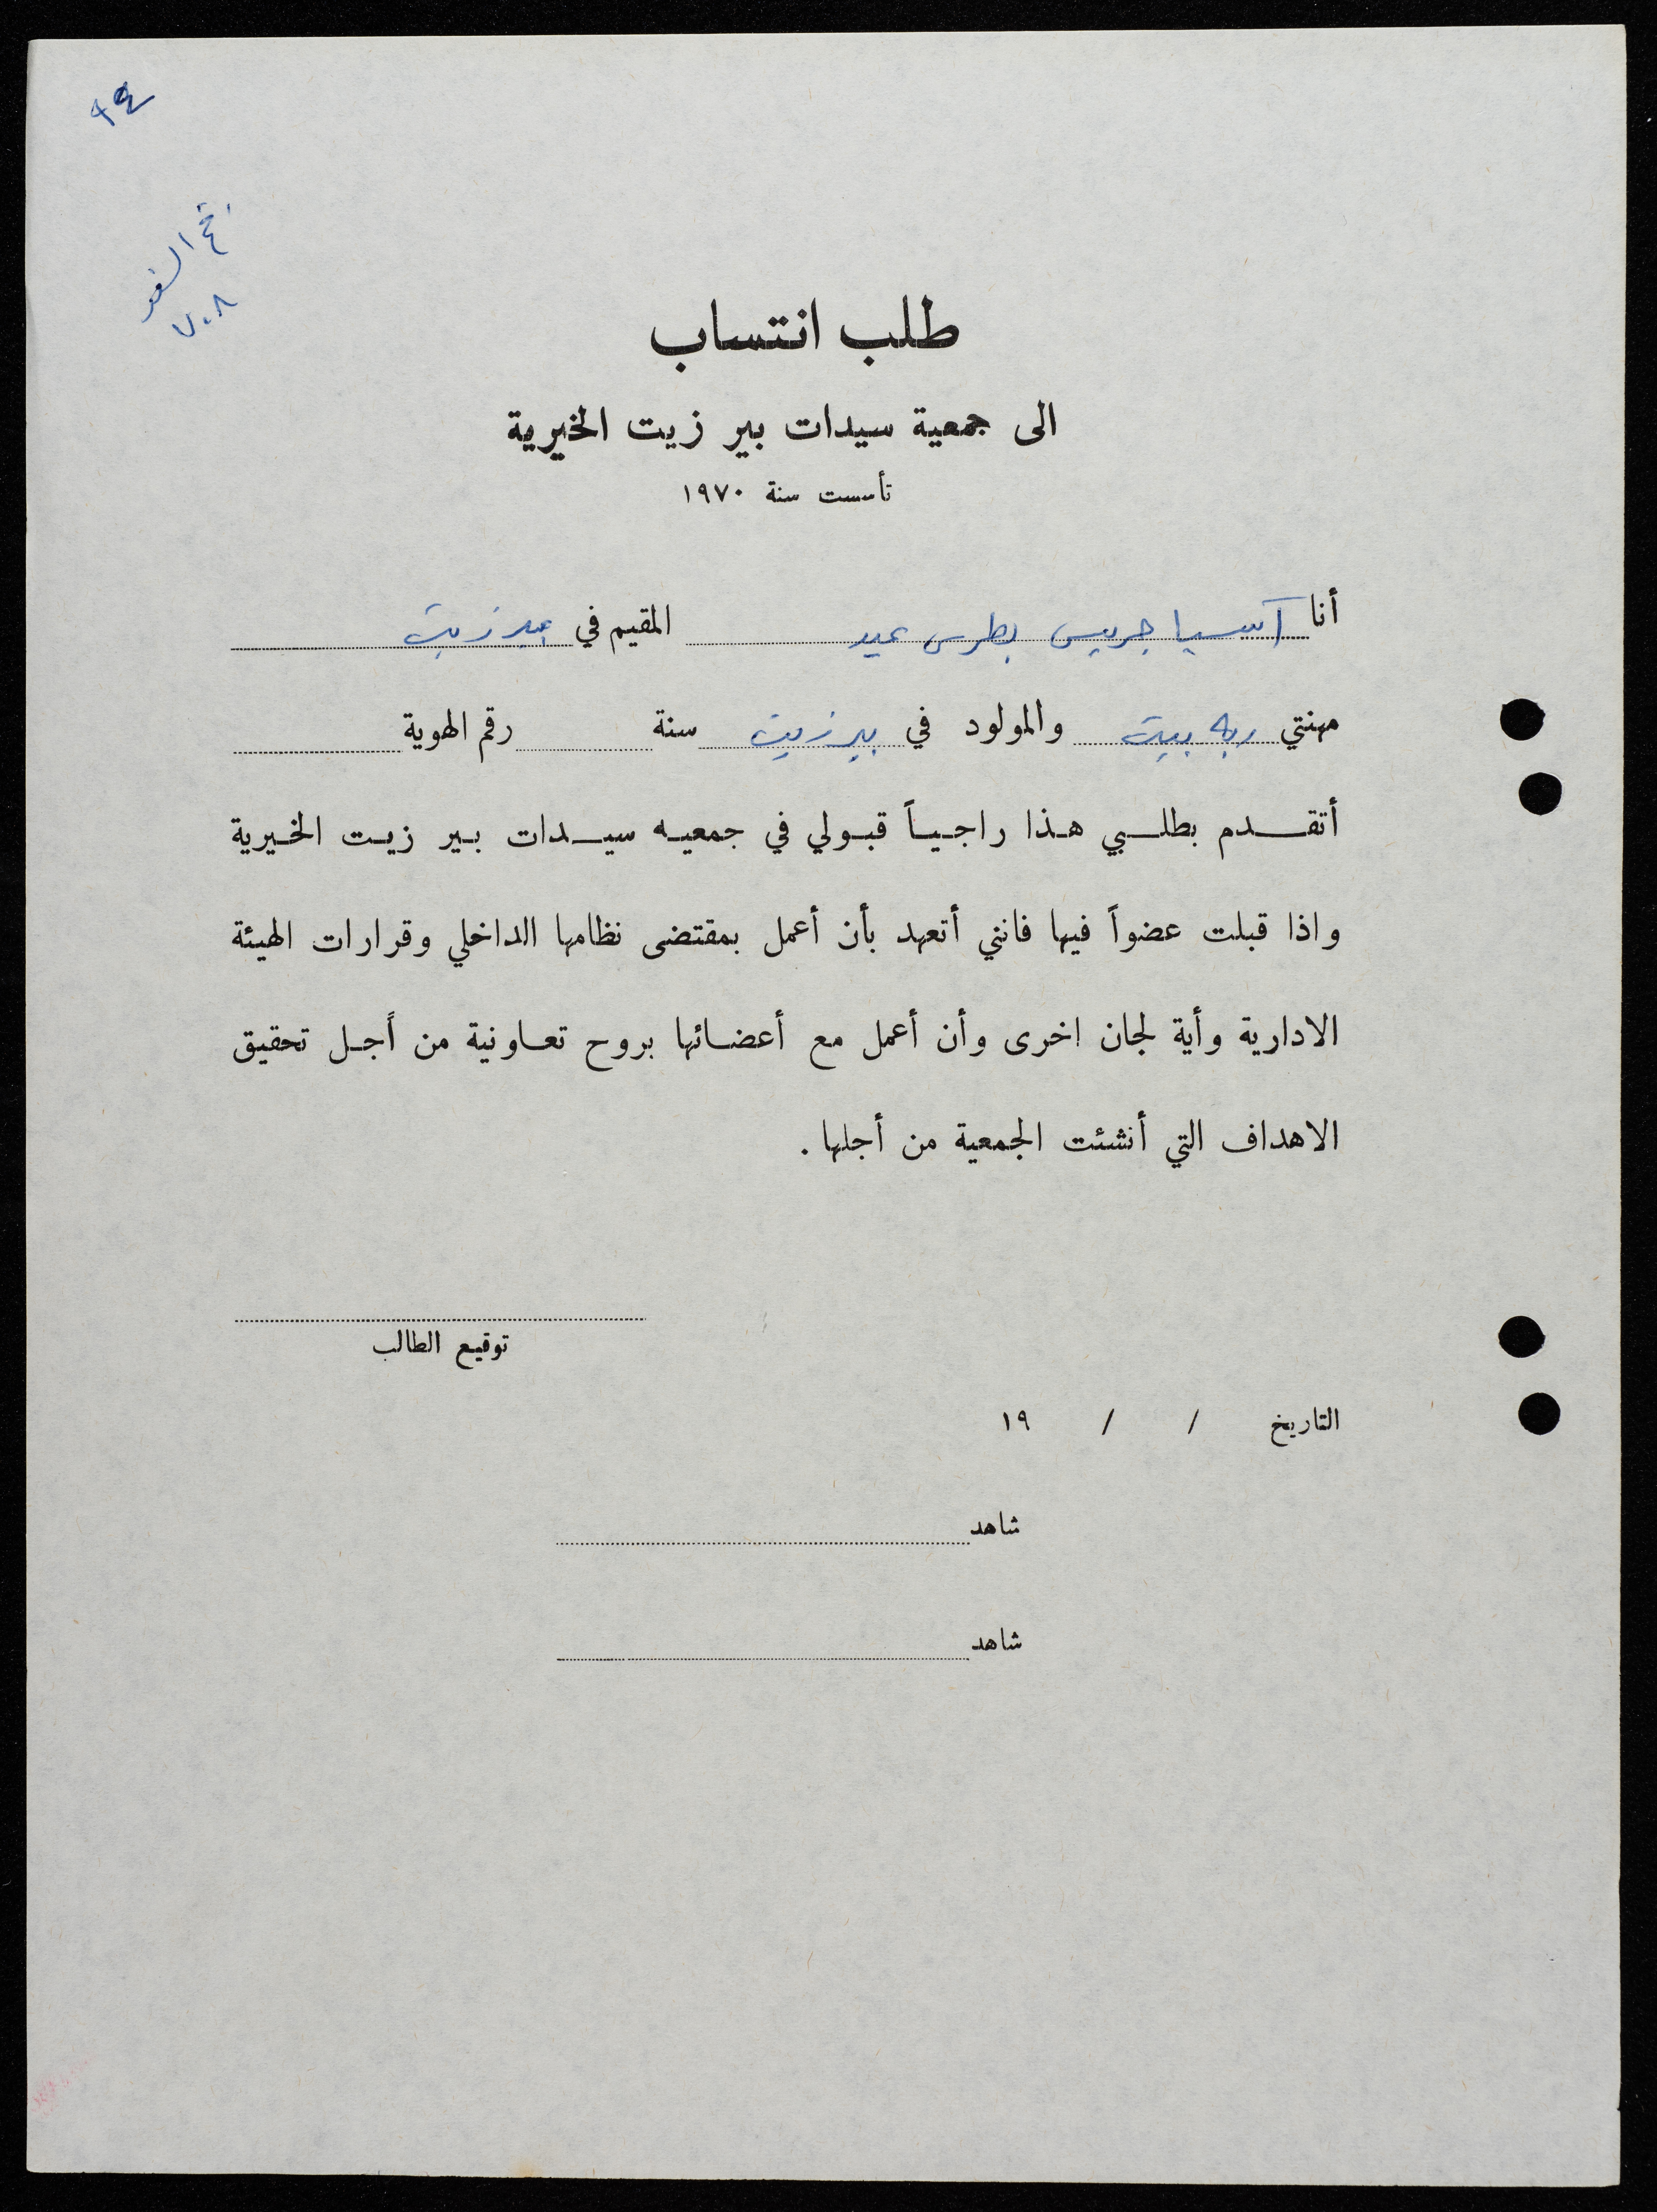 ٩٤
٧٠٨
طلب انتساب
الى جمعية سيدات بير زيت الخيرية
تأسست سنة ١٩٧٠
أنا آسيا جريس بطرس عيد المقيم في بيرزيت
مهنتي ربه بيت والمولود في بيرزيت سنة رقم الهوية
أتقدم بطلبي هذا راجياً قبولي في جمعيه سيدات بير زيت الخيرية
واذا قبلت عضواً فيها فانني أتعهد بأن أعمل بمقتضى نظامها الداخلي وقرارات الهيئة
الادارية وأية لجان اخرى وأن أعمل مع أعضائها بروح تعاونية من أجل تحقيق
الاهداف التي أنشئت الجمعية من أجلها .
توقيع الطالب
التاريخ / / ١٩
شاهد
شاهد